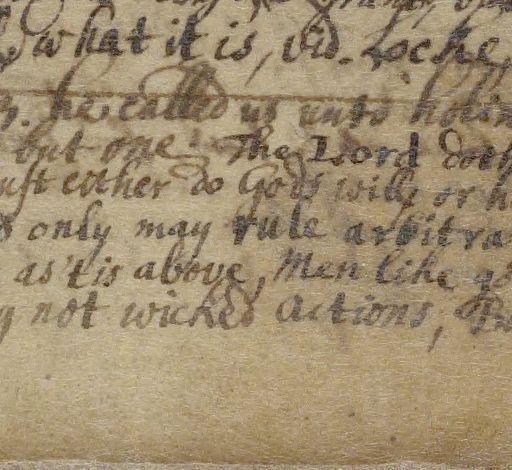 what it is, vid. Locke,
he called us unto holin
but one. The Lord doth
ust either do Gods will, or h
only may rule arbitra
as 't is above, Men like go
y not wicked Actions,